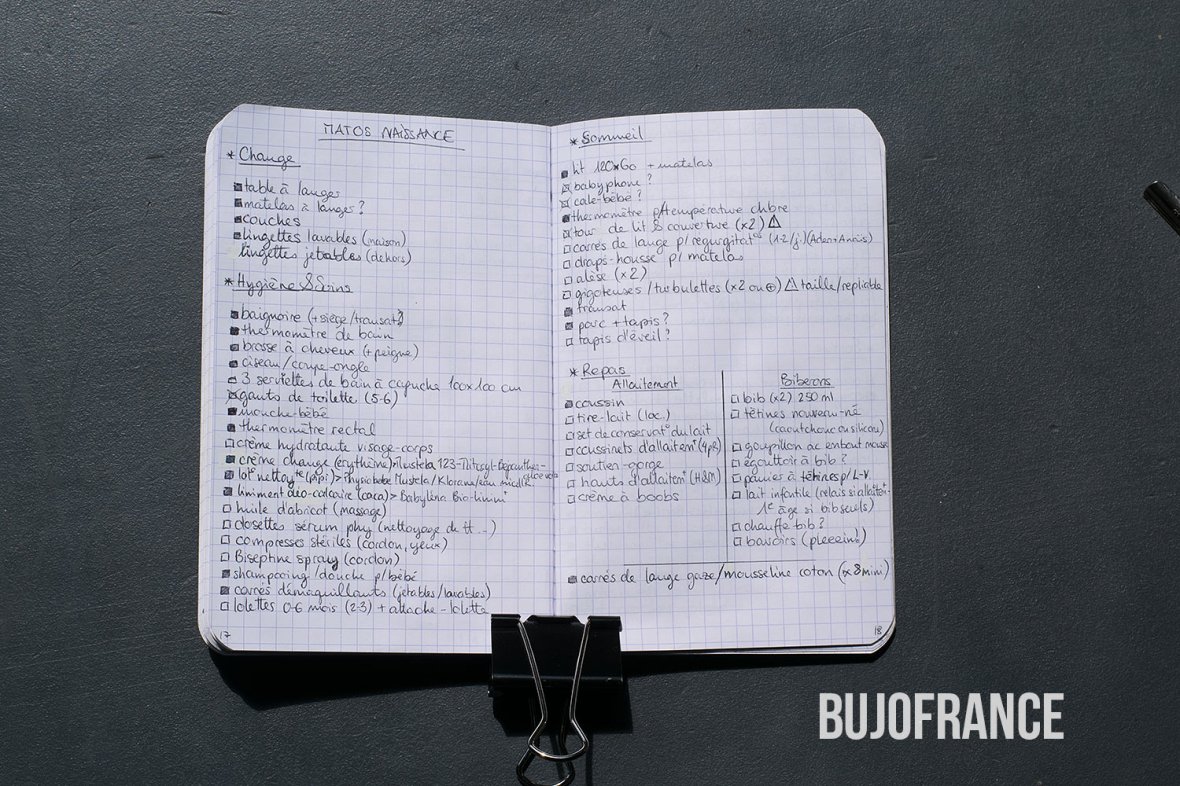 MATOS NAISSANCE
* Change
table à langes
matelas à langes ?
couches
lingettes lavables (maison)
lingettes jetables (dehors)
* Hygiène & Soins
baignoire (+ siège/transat ?)
thermomètre de bain
brosse à cheveux (+ peigne)
ciseau/coupe-ongle
3 serviettes de bain à capuche 100x100 cm
gants de toilette (5-6)
mouche-bébé
thermomètre rectal
crème hydratante visage-corps
crème change (érythème)>Mustela 123-Mitosyl-Bepanthen-
aloe vera
lot° nettoyte (pipi)> Physiobébé Mustela/Klorane/eau micell.
liniment oléo-calcaire (caca)> Babyléna Bio-linint
huile d'abricot (massage)
dosettes sérum phy (nettoyage de tt ...)
compresses stériles (cordon, yeux)
Biseptine spray (cordon)
shampooing/douche p/ bébé
carrés démaquillants (jetables/lavables)
lolettes 0-6 mois (2-3) + attache-lolette
17
* Sommeil
lit 120x60 + matelas
babyphone ?
cale-bébé ?
thermomètre p/ température chbre
tour de lit & couverture (x2) ⚠
carrés de lange p/ regurgitat°s (1-2/j.)(Aden+Anais)
draps-housse p/ matelas
alèse (x2)
gigoteuses/turbulettes (x2 ou ⊕) ⚠ taille/repliable
transat
parc + tapis ?
tapis d'éveil ?
* Repas
Allaitement
coussin
tire-lait (loc.)
set de conservat° du lait
coussinets d'allaitemt (4pR)
soutien-gorge
hauts d'allaitemt (H&M)
crème à boobs
Biberons
bib (x2) 250 ml
tétines nouveau-né
(caoutchouc ou silicon)
goupillon ac embout mousse
égouttoir à bib ?
panier à tétines p/ L-V.
lait infantile (relais si allaitemt-
1e âge si bib seuls)
chauffe bib ?
bavoirs (pleeein !)
carrés de lange gaze/mousseline coton (x 8 mini)
18
BUJOFRANCE